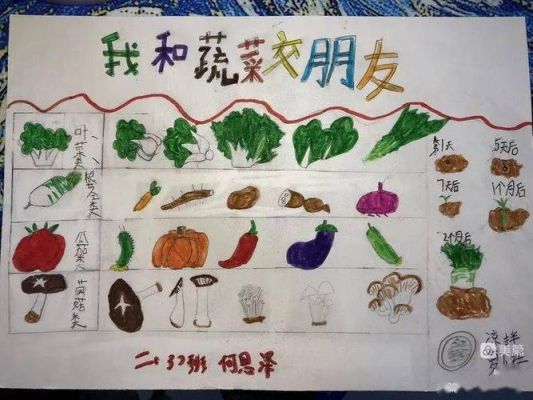 我和蔬菜交朋友
叶菜类
根茎类
瓜茄类
菌菇类
第1天
5天后
7天后
1个月后
2个月后
凉拌
萝
二、5)班 何思泽